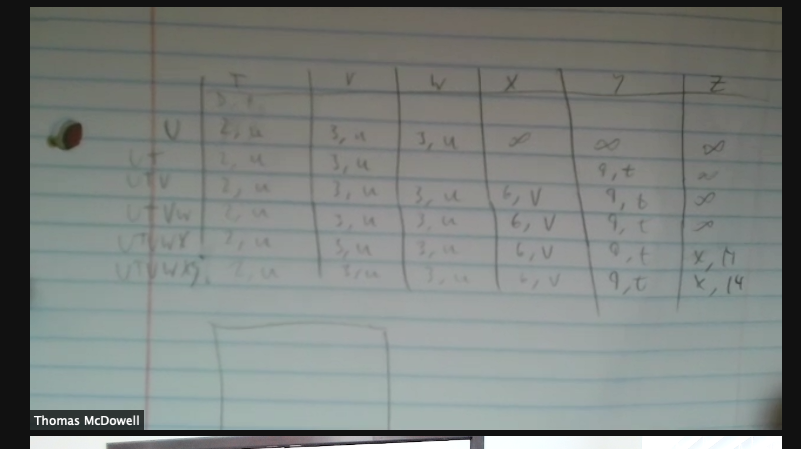 T V W X Y Z
U 2, u 3, u 3, u ∞ ∞ ∞
UT 2, u 3, u 9, t ∞
UTV 2, u 3, u 3, u 6, V 9, t ∞
UTVW 2, u 3, u 3, u 6, V 9, t ∞
UTVWX 2, u 3, u 3, u 6, V 9, t X, 14
UTVWXy 2, u 3, u 3, u 6, V 9, t X, 14
Thomas McDowell